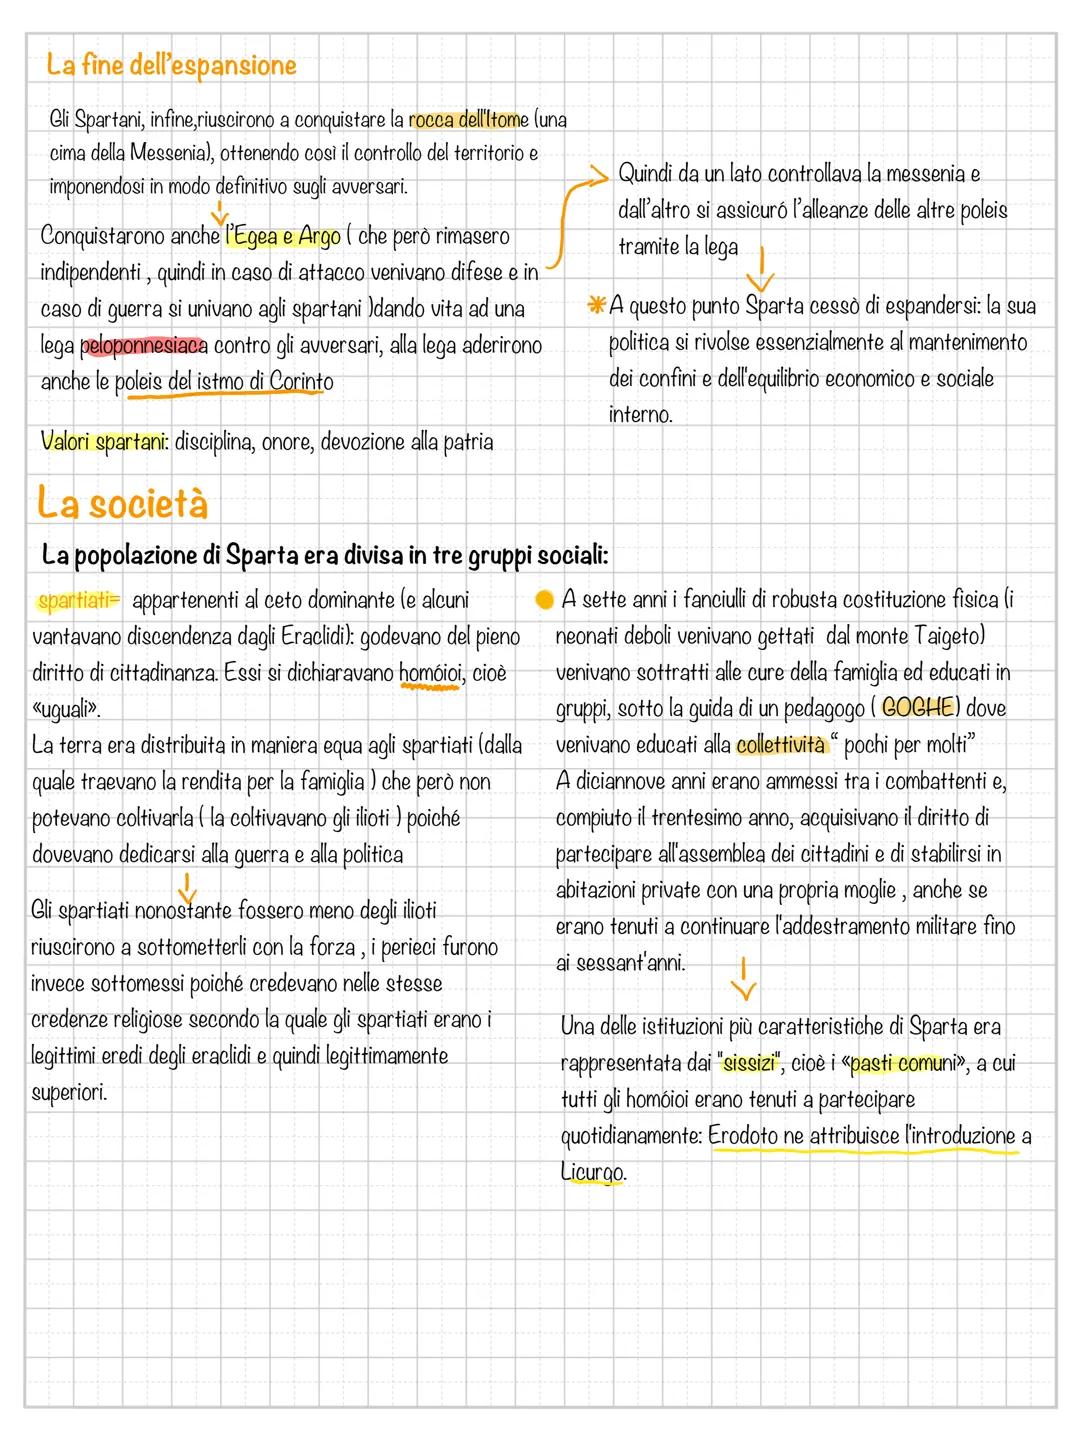 La fine dell'espansione
Gli Spartani, infine,riuscirono a conquistare la rocca dell'Itome (una
cima della Messenia), ottenendo così il controllo del territorio e
imponendosi in modo definitivo sugli avversari.
Conquistarono anche l'Egea e Argo ( che però rimasero
indipendenti , quindi in caso di attacco venivano difese e in
caso di guerra si univano agli spartani )dando vita ad una
lega peloponnesiaca contro gli avversari, alla lega aderirono
anche le poleis del istmo di Corinto
Quindi da un lato controllava la messenia e
dall'altro si assicuró l'alleanze delle altre poleis
tramite la lega
A questo punto Sparta cessò di espandersi: la sua
politica si rivolse essenzialmente al mantenimento
dei confini e dell'equilibrio economico e sociale
interno.
Valori spartani: disciplina, onore, devozione alla patria
La società
La popolazione di Sparta era divisa in tre gruppi sociali:
spartiati= appartenenti al ceto dominante (e alcuni
vantavano discendenza dagli Eraclidi): godevano del pieno
diritto di cittadinanza. Essi si dichiaravano homóioi, cioè
«uguali».
La terra era distribuita in maniera equa agli spartiati (dalla
quale traevano la rendita per la famiglia ) che però non
potevano coltivarla ( la coltivavano gli ilioti ) poiché
dovevano dedicarsi alla guerra e alla politica
Gli spartiati nonostante fossero meno degli ilioti
riuscirono a sottometterli con la forza , i perieci furono
invece sottomessi poiché credevano nelle stesse
credenze religiose secondo la quale gli spartiati erano i
legittimi eredi degli eraclidi e quindi legittimamente
superiori.
A sette anni i fanciulli di robusta costituzione fisica (i
neonati deboli venivano gettati dal monte Taigeto)
venivano sottratti alle cure della famiglia ed educati in
gruppi, sotto la guida di un pedagogo ( GOGHE) dove
venivano educati alla collettività “ pochi per molti”
A diciannove anni erano ammessi tra i combattenti e,
compiuto il trentesimo anno, acquisivano il diritto di
partecipare all'assemblea dei cittadini e di stabilirsi in
abitazioni private con una propria moglie , anche se
erano tenuti a continuare l'addestramento militare fino
ai sessant'anni.
Una delle istituzioni più caratteristiche di Sparta era
rappresentata dai "sissizi", cioè i «pasti comuni», a cui
tutti gli homóioi erano tenuti a partecipare
quotidianamente: Erodoto ne attribuisce l'introduzione a
Licurgo.